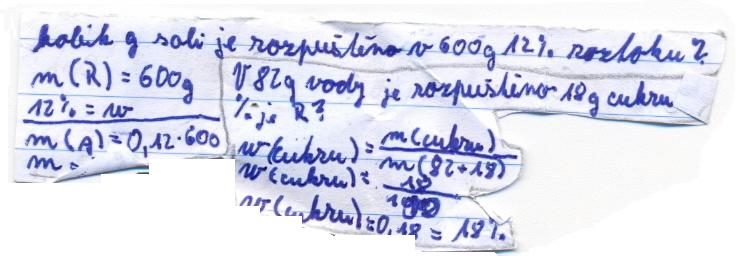 kolik g soli je rozpuštěno v 600g 12% roztoku?
m(R) = 600g
12% = w
m(A) = 0,12·600
m =
V 82g vody je rozpuštěno 18g cukru
% je R?
w(cukru) = m(cukru) / m(82+18)
w(cukru) = 18 / 100
w(cukru) = 0,18 = 18%